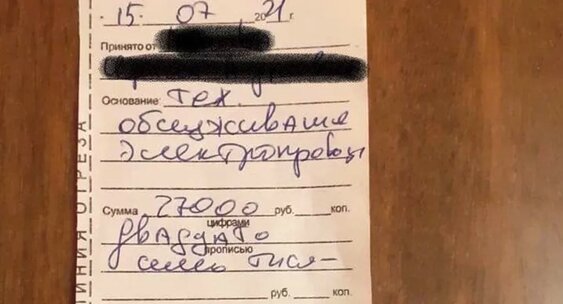 15. 07 2021г.
Принято от
Основание: тех.
обслуживание
электропровод
Сумма 27000 руб. коп.
цифрами
двадцать
прописью
семь тыся-
руб. коп.
ЛИНИЯ ОТРЕЗА